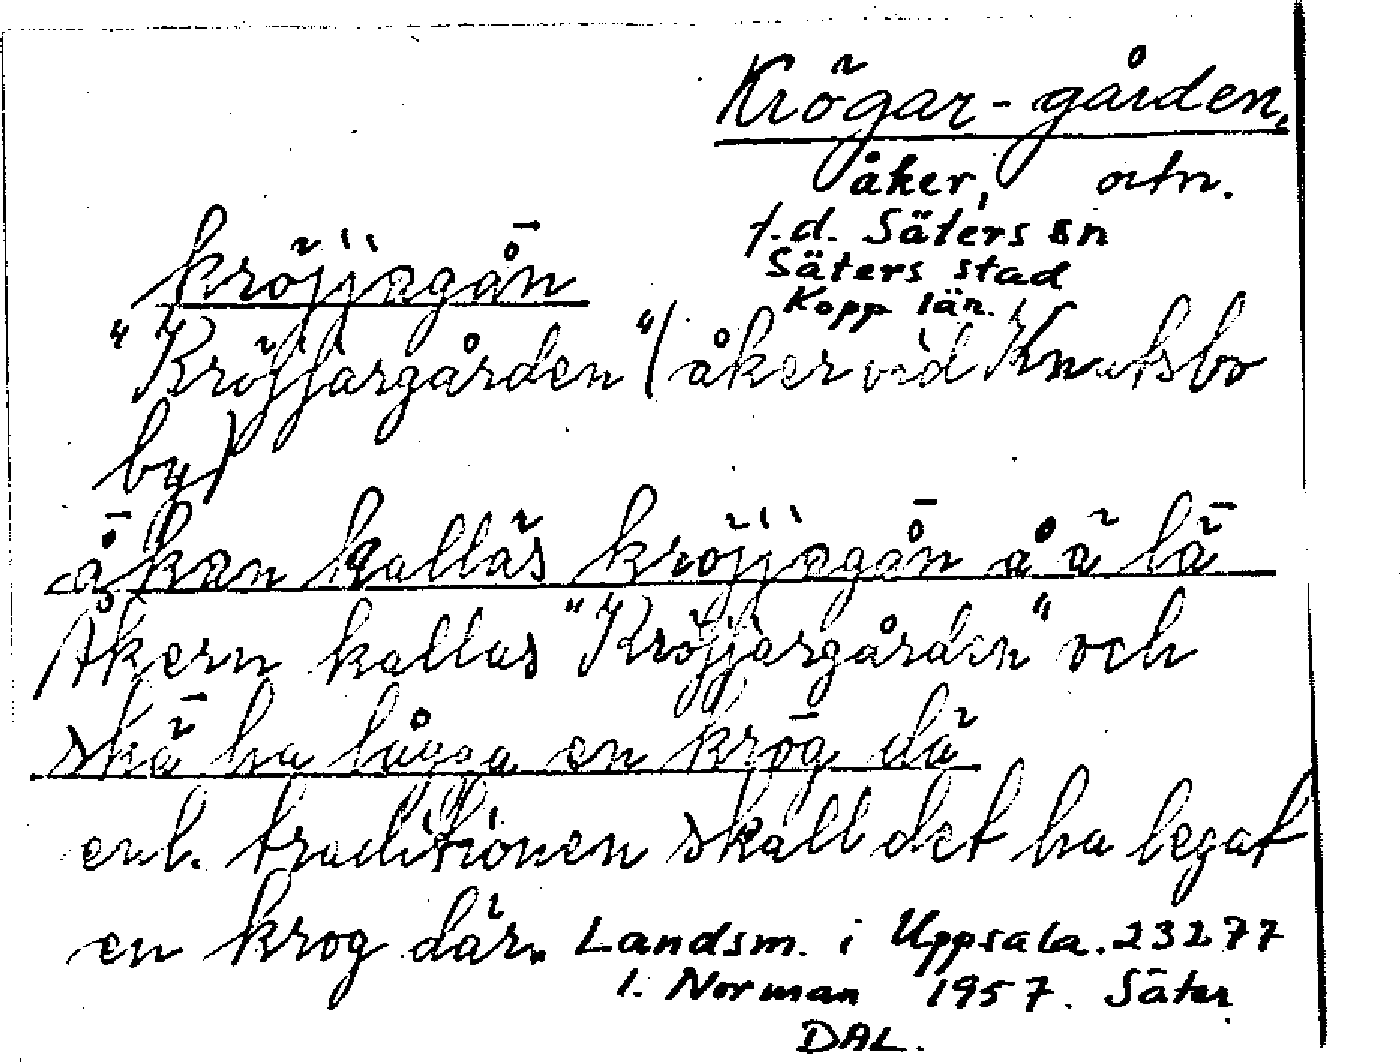 Krögar-gården.
åker, ortn.
f.d. Säters sn
Säters stad
Kopp län.
kröjjagån̄
"Kröjjargården" (åker vid Knutsbo
by)
kallas kröjjagån̄ å
Åkern kallas "Kröjjargården" och
ha lågga en kroḡ dä
enl. traditionen skall det ha legat
en krog där. Landsm. i Uppsala. 23277
l. Norman 1957. Säter
DAL.